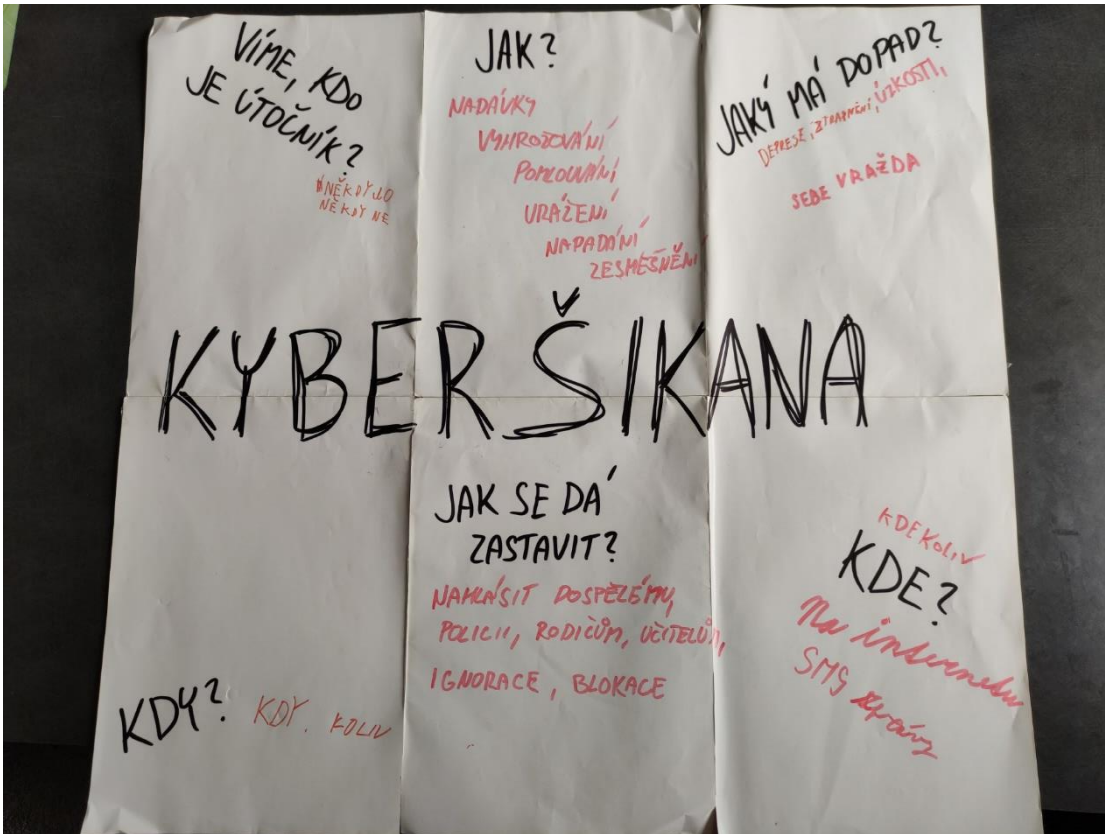 VÍME, KDO
JE ÚTOČNÍK?
NĚKDY JO
NĚKDY NE
JAK?
NADÁVKY
VYHROŽOVÁNÍ
POMLOUVÁNÍ
URÁŽENÍ
NAPADÁNÍ
ZESMĚŠNĚNÍ
JAKÝ MÁ DOPAD?
DEPRESE, ZTRAPNĚNÍ, ÚZKOSTI,
SEBE VRAŽDA
KYBERŠIKANA
JAK SE DÁ
ZASTAVIT?
NAHLÁSIT DOSPĚLÉMU,
POLICII, RODIČŮM, UČITELŮM,
IGNORACE, BLOKACE
KDEKOLIV
KDE?
Na internetu
SMS zprávy
KDY? KDY. KOLIV